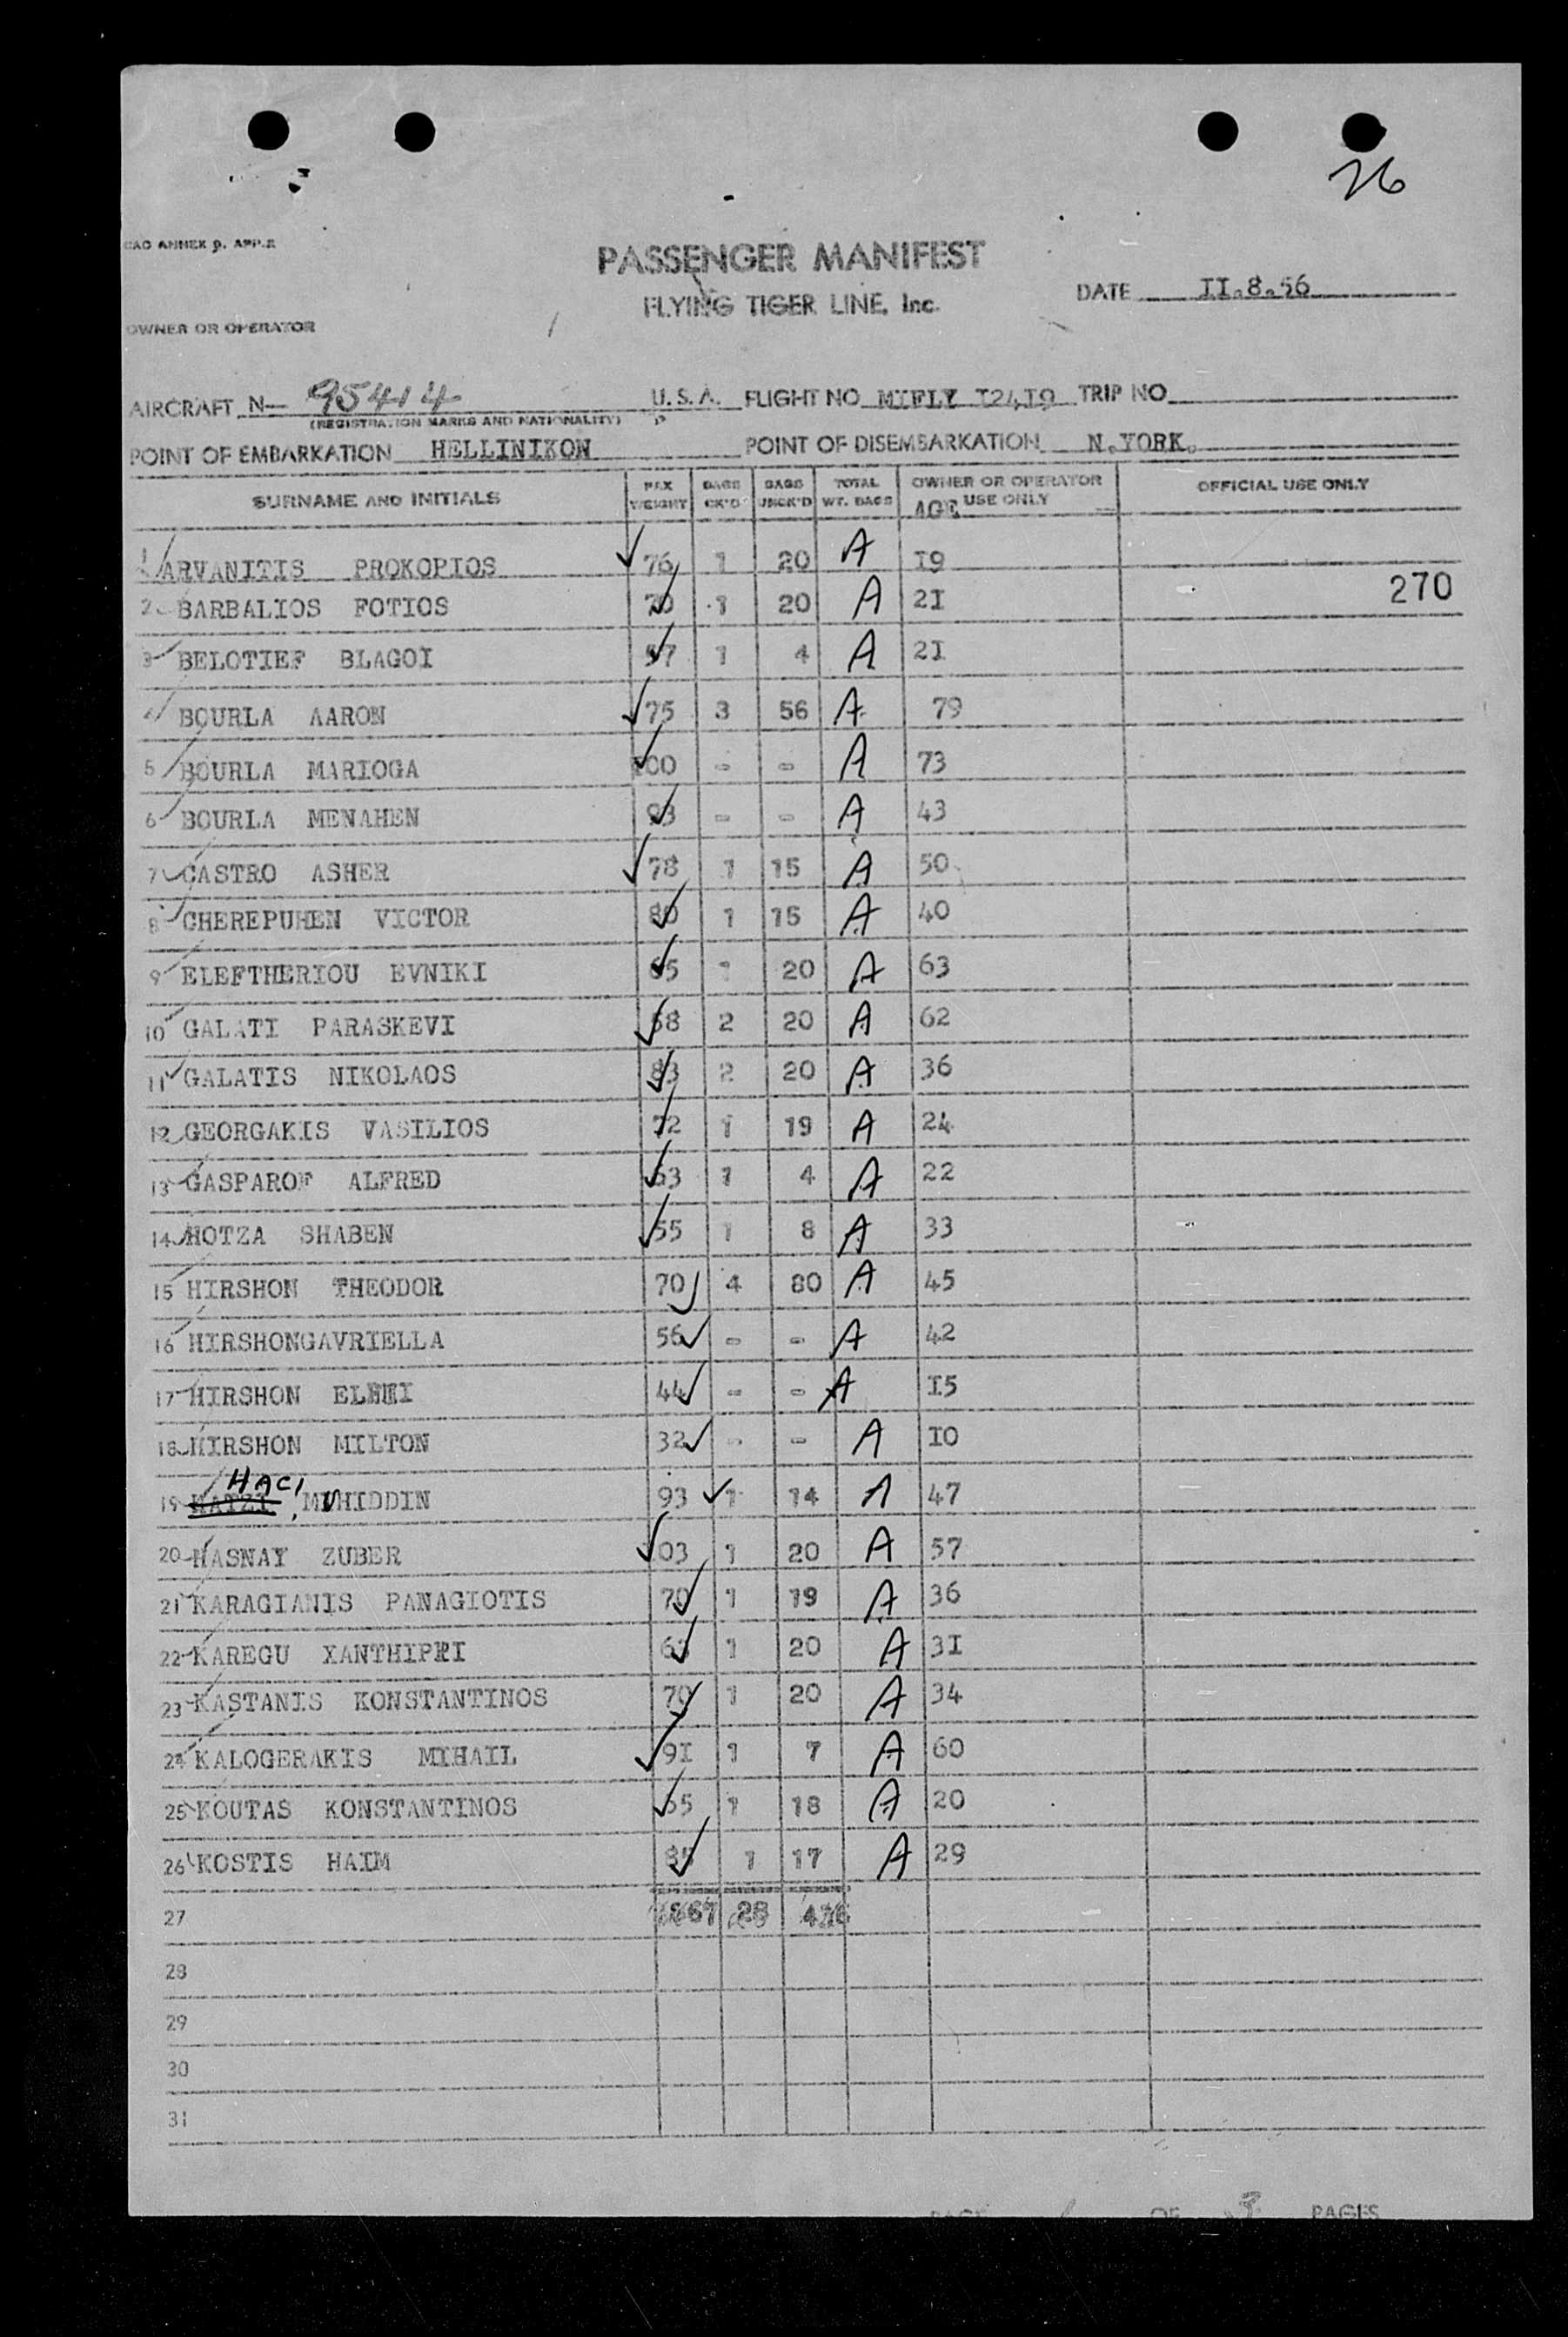 26
CAO ANNEX 9. APP.2
PASSENGER MANIFEST
FLYING TIGER LINE, Inc.
DATE II.8.56
OWNER OR OPERATOR
AIRCRAFT N— 95414 U.S.A. FLIGHT NO MIFLY I24I9 TRIP NO
(REGISTRATION MARKS AND NATIONALITY)
POINT OF EMBARKATION HELLINIKON POINT OF DISEMBARKATION N.YORK.
SURNAME AND INITIALS PAX WEIGHT BAGS CK'D BAGS UNCK'D TOTAL WT. BAGS OWNER OR OPERATOR USE ONLY AGE OFFICIAL USE ONLY
1 ARVANITIS PROKOPIOS 76 1 20 A I9
2 BARBALIOS FOTIOS 70 1 20 A 2I 270
3 BELOTIEF BLAGOI 57 1 4 A 2I
4 BOURLA AARON 75 3 56 A 79
5 BOURLA MARIOGA 100 - - A 73
6 BOURLA MENAHEN 93 - - A 43
7 CASTRO ASHER 78 1 15 A 50
8 CHEREPUHEN VICTOR 80 1 15 A 40
9 ELEFTHERIOU EVNIKI 65 1 20 A 63
10 GALATI PARASKEVI 58 2 20 A 62
11 GALATIS NIKOLAOS 83 2 20 A 36
12 GEORGAKIS VASILIOS 72 1 19 A 24
13 GASPAROF ALFRED 63 1 4 A 22
14 HOTZA SHABEN 55 1 8 A 33
15 HIRSHON THEODOR 70 4 80 A 45
16 HIRSHONGAVRIELLA 56 - - A 42
17 HIRSHON ELENI 44 - - A I5
18 HIRSHON MILTON 32 - - A IO
HACI
19 HATZI, MUHIDDIN 93 1 14 A 47
20 HASNAY ZUBER 103 1 20 A 57
21 KARAGIANIS PANAGIOTIS 70 1 19 A 36
22 KAREGU XANTHIPPI 1 20 A 3I
23 KASTANIS KONSTANTINOS 70 1 20 A 34
24 KALOGERAKIS MIHAIL 9I 1 7 A 60
25 KOUTAS KONSTANTINOS 65 1 18 A 20
26 KOSTIS HAIM 1 17 A 29
27 28
28
29
30
31
PAGE 1 OF 3 PAGES